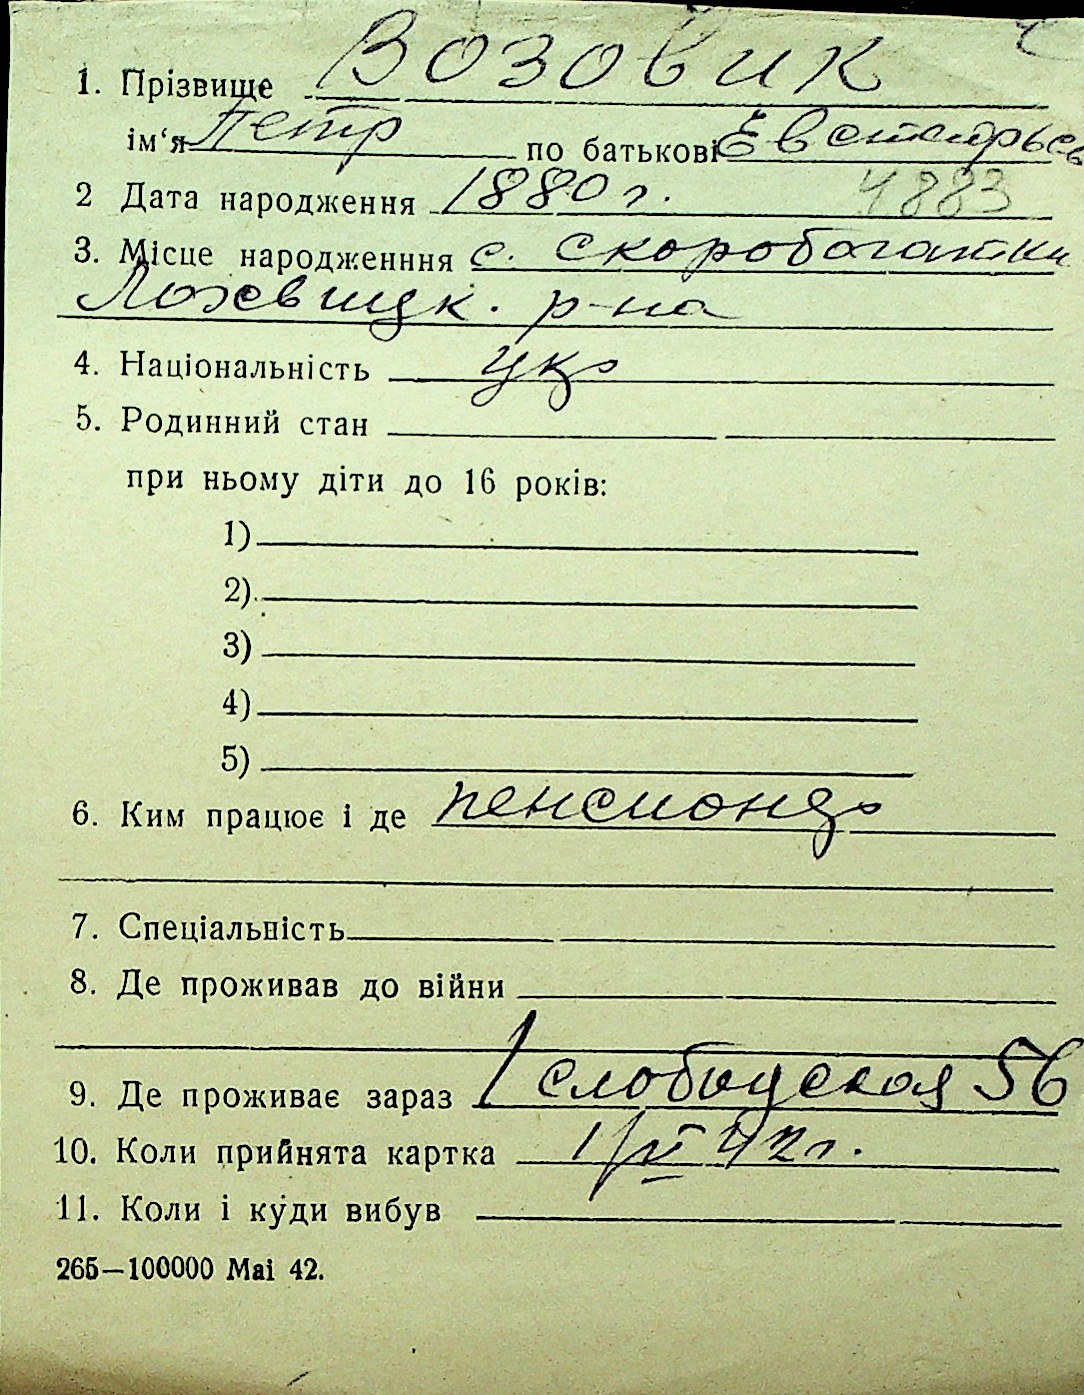 1. Прізвище Возовик
ім‘я Петр по батькові
2 Дата народження 1880 г. 4883
3. Місце народженння с. Скоробогатки
Лохвицк. р-на
4. Національність укр
5. Родинний стан
при ньому діти до 16 років:
1)
2)
3)
4)
5)
6. Ким працює і де пенсионер
7. Спеціальність
8. Де проживав до війни
9. Де проживає зараз 1 слободская 56
10. Коли прийнята картка 42 г.
11. Коли і куди вибув
265—100000 Mai 42.